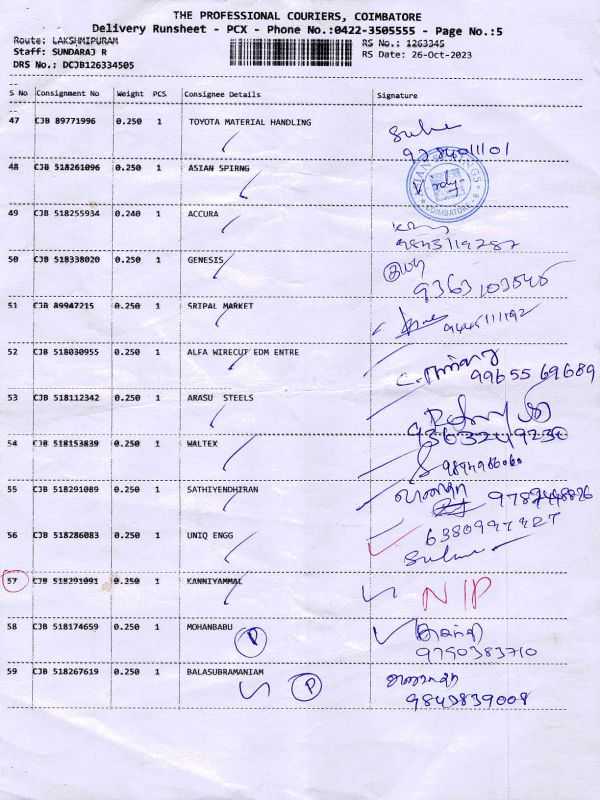 THE PROFESSIONAL COURIERS, COIMBATORE
Delivery Runsheet - PCX - Phone No.:0422-3505555 - Page No.:5
Route: LAKSHMIPURAM
Staff: SUNDARAJ R
DRS No.: DCJB126334505
RS No.: 1263345
RS Date: 26-Oct-2023
S No Consignment No Weight PCS Consignee Details Signature
47 CJB 89771996 0.250 1 TOYOTA MATERIAL HANDLING
48 CJB 518261096 0.250 1 ASIAN SPIRNG
COIMBATORE - 6
49 CJB 518255934 0.240 1 ACCURA
9843119287
50 CJB 518338020 0.250 1 GENESIS
9363103545
51 CJB 89947215 0.250 1 SRIPAL MARKET
9445111192
52 CJB 518030955 0.250 1 ALFA WIRECUT EDM ENTRE
99655 69689
53 CJB 518112342 0.250 1 ARASU STEELS
9363249230
54 CJB 518153839 0.250 1 WALTEX
9894986060
55 CJB 518291089 0.250 1 SATHIYENDHIRAN
56 CJB 518286083 0.250 1 UNIQ ENGG
57 CJB 518291091 0.250 1 KANNIYAMMAL NIP
58 CJB 518174659 0.250 1 MOHANBABU P
9750383710
59 CJB 518267619 0.250 1 BALASUBRAMANIAM P
9843839008